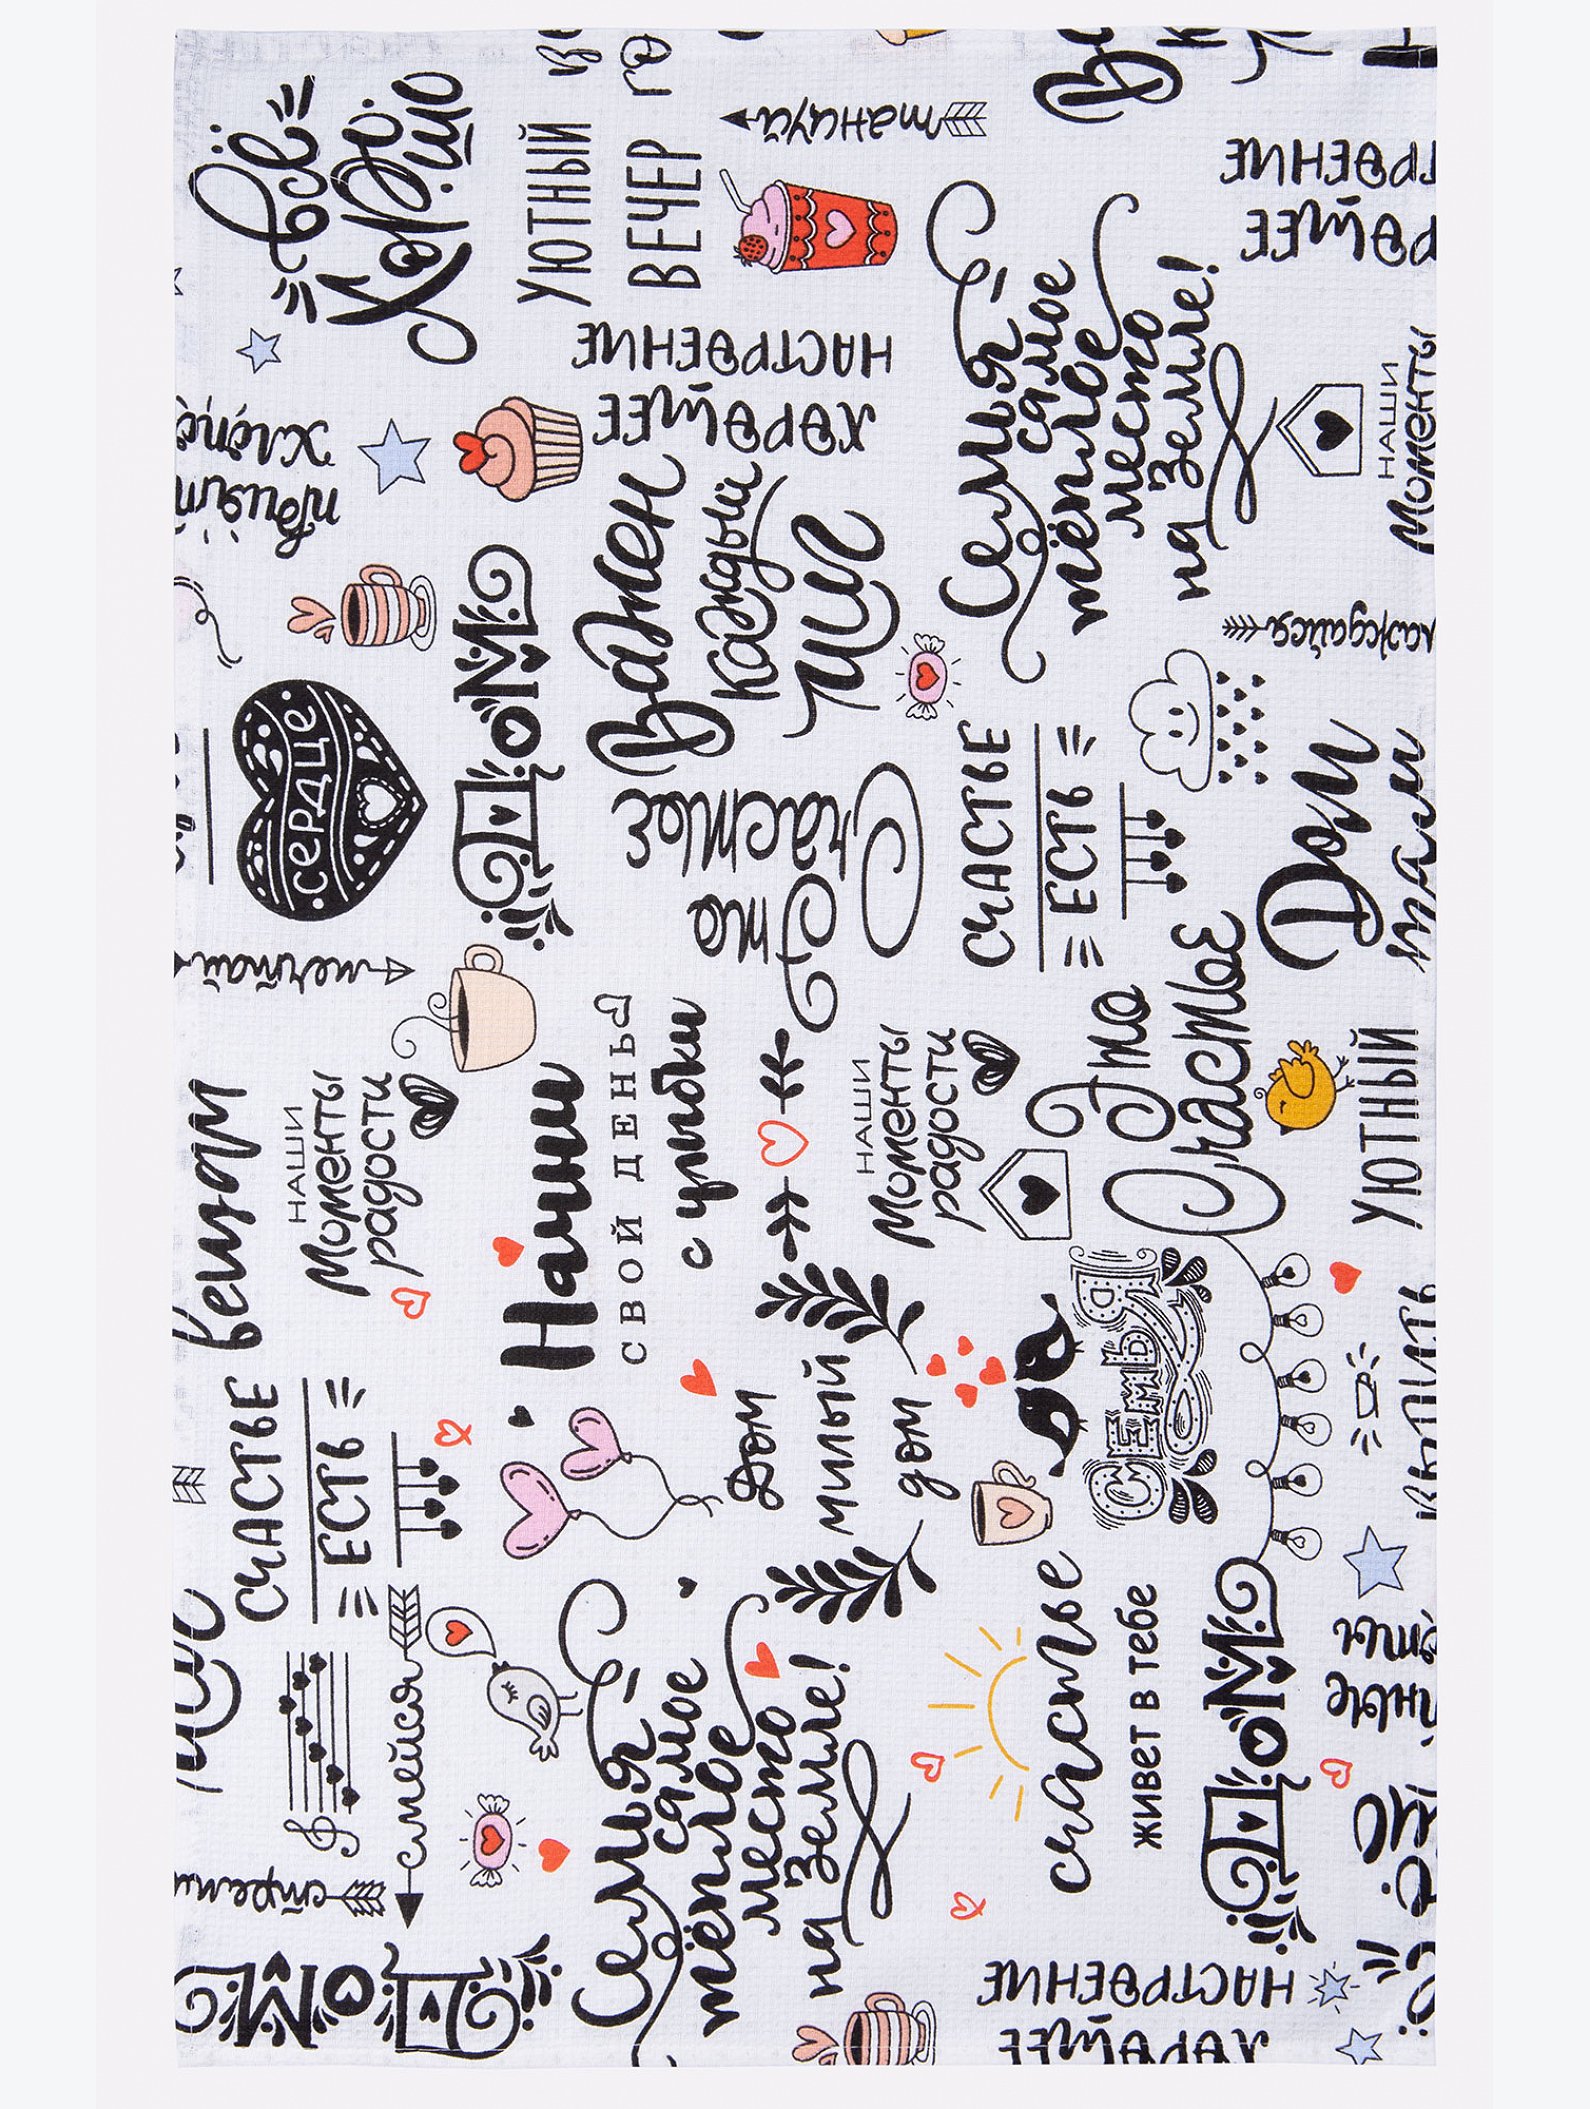 всё
хорошо
уютный
вечер
танцуй
настроение
хорошее
Семья
самое
тёплое
место
на земле!
наши
моменты
дом
Важен
каждый
миг
сердце
Это
Счастье
счастье
есть
Дом
там
мечтай
вещам
наши
моменты
радости
Начни
свой день
с улыбки
наши
моменты
радости
Это
Счастье
уютный
счастье
есть
Дом
милый
дом
семья
смейся
Семья
самое
тёплое
место
на земле!
счастье
живет в тебе
дом
дом
настроение
хорошее